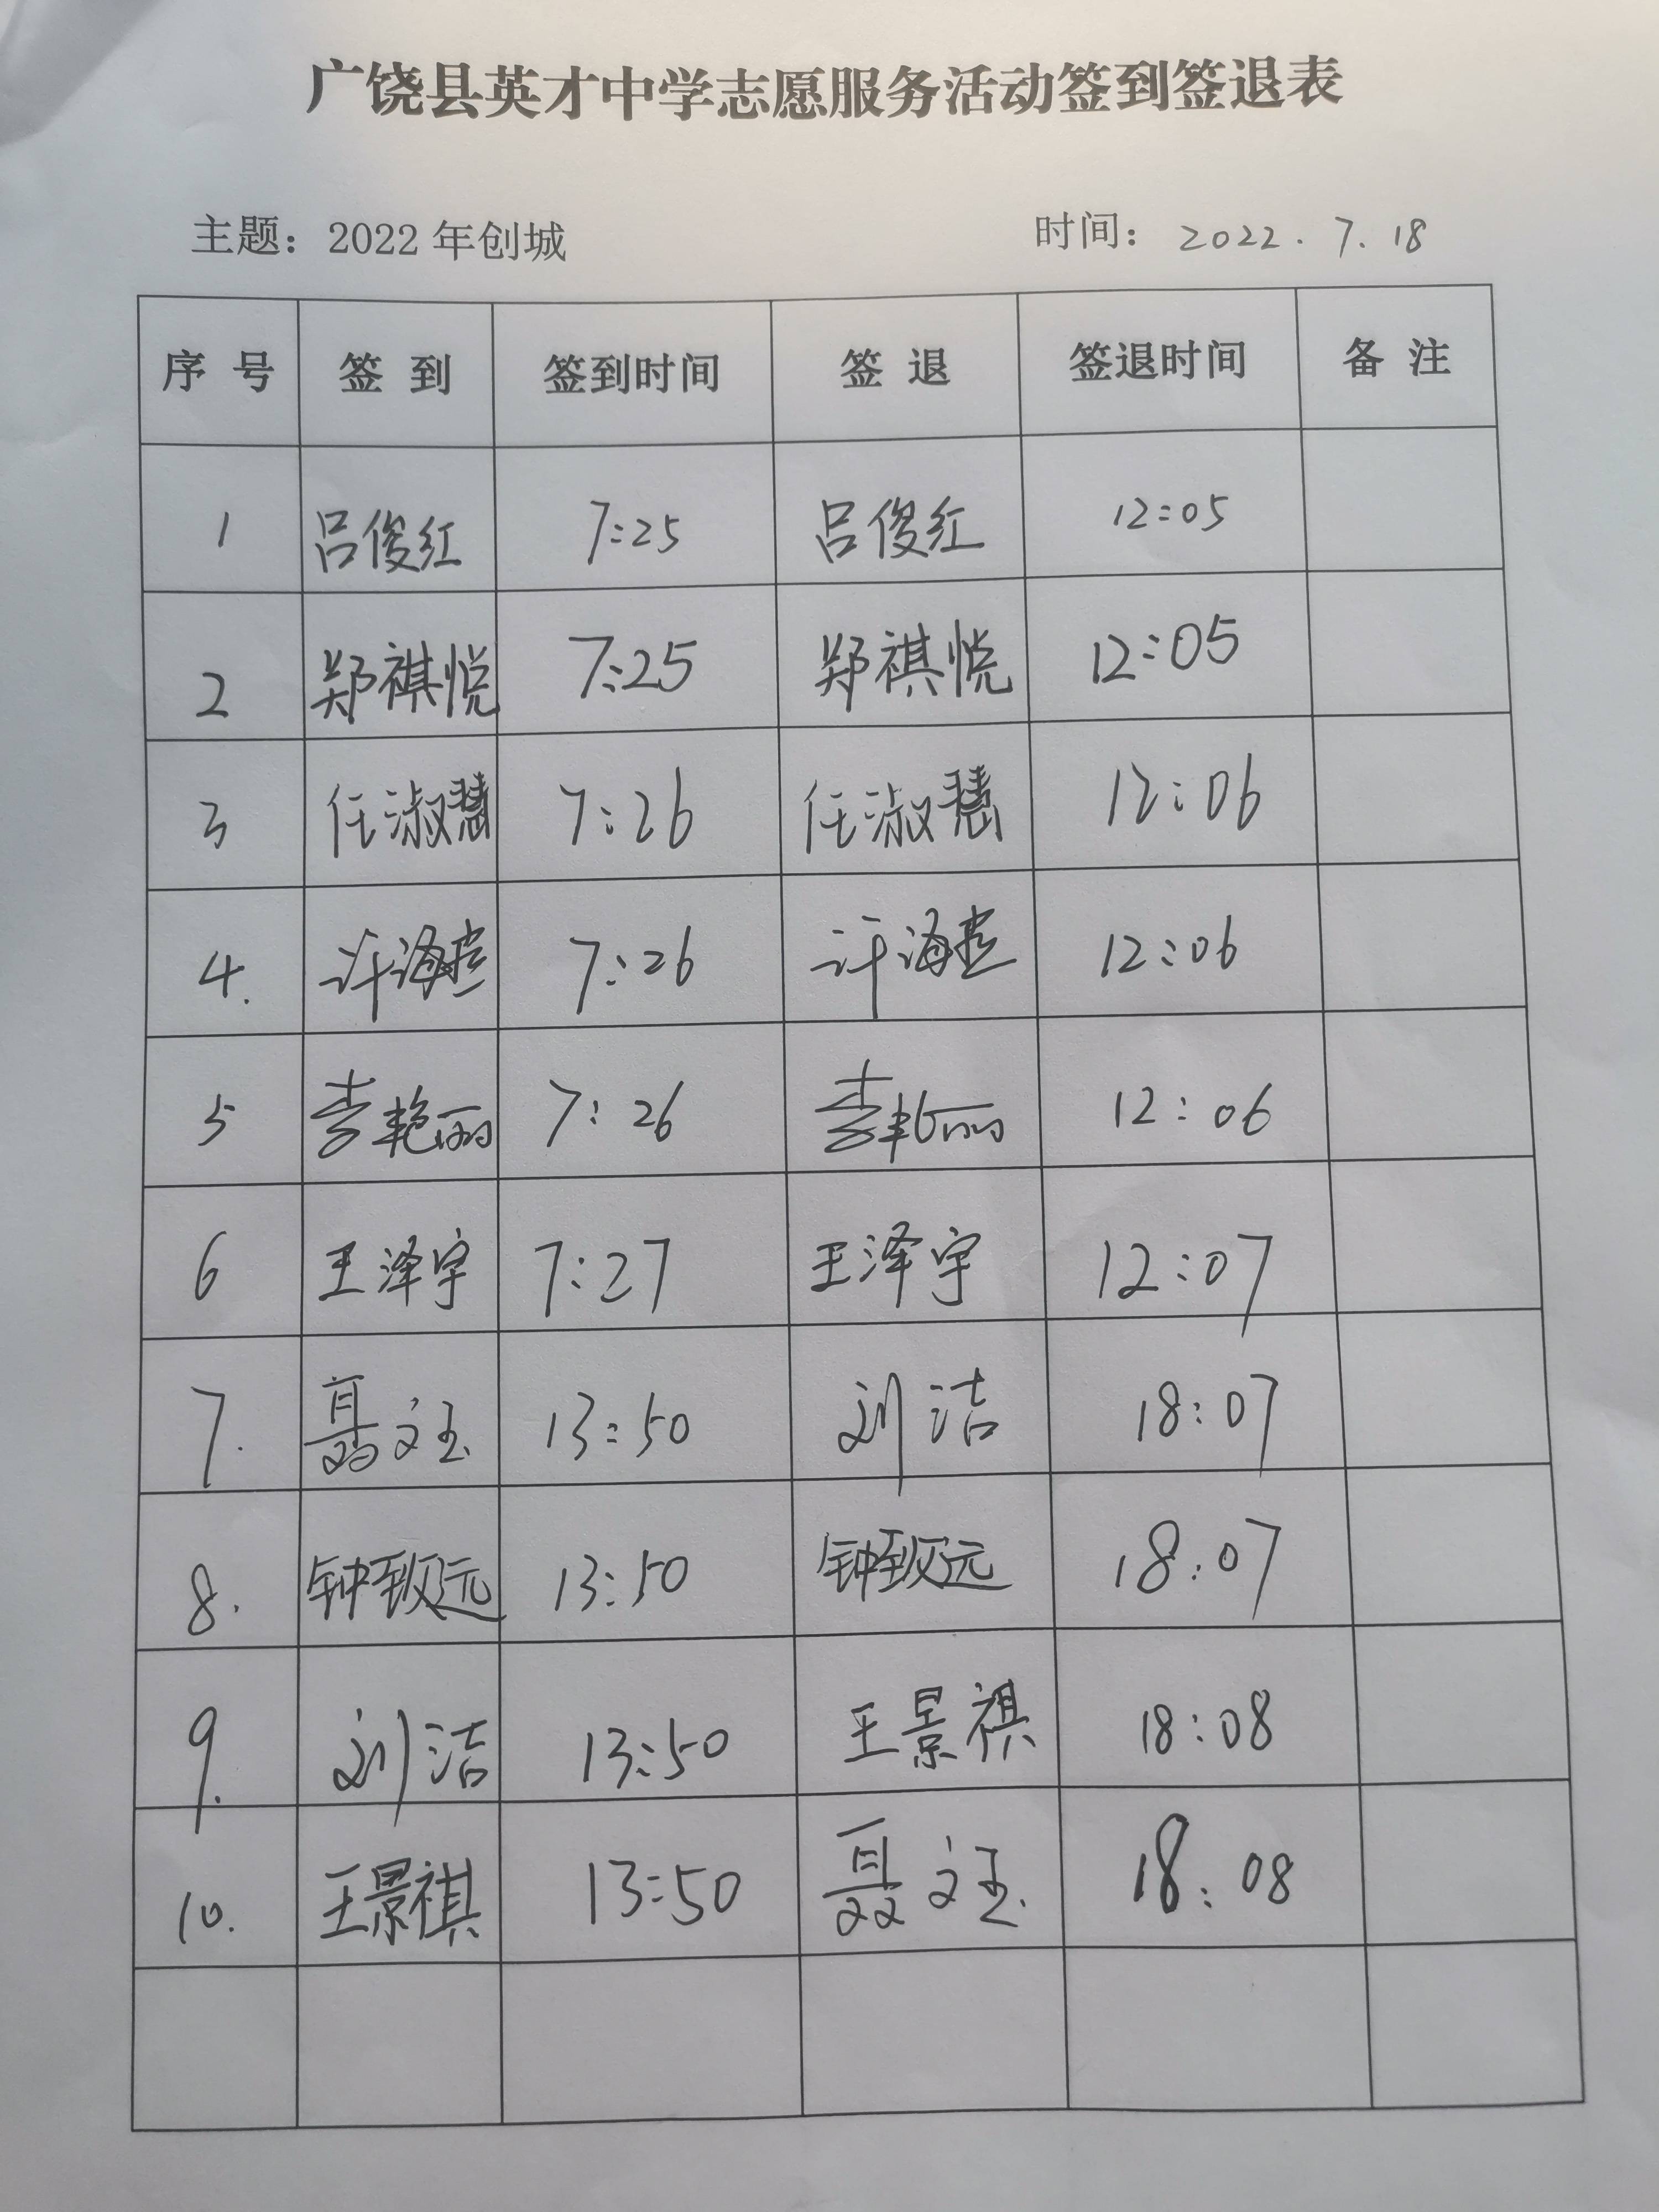 广饶县英才中学志愿服务活动签到签退表
主题：2022年创城 时间：2022.7.18
序号 签到 签到时间 签退 签退时间 备注
1 吕俊红 7:25 吕俊红 12:05
2 郑祺悦 7:25 郑祺悦 12:05
3 任淑慧 7:26 任淑慧 12:06
4. 许海燕 7:26 许海燕 12:06
5 李艳丽 7:26 李艳丽 12:06
6 王泽宇 7:27 王泽宇 12:07
7. 聂文玉 13:50 刘洁 18:07
8. 钟致远 13:50 钟致远 18:07
9. 刘洁 13:50 王景祺 18:08
10. 王景祺 13:50 聂文玉 18:08